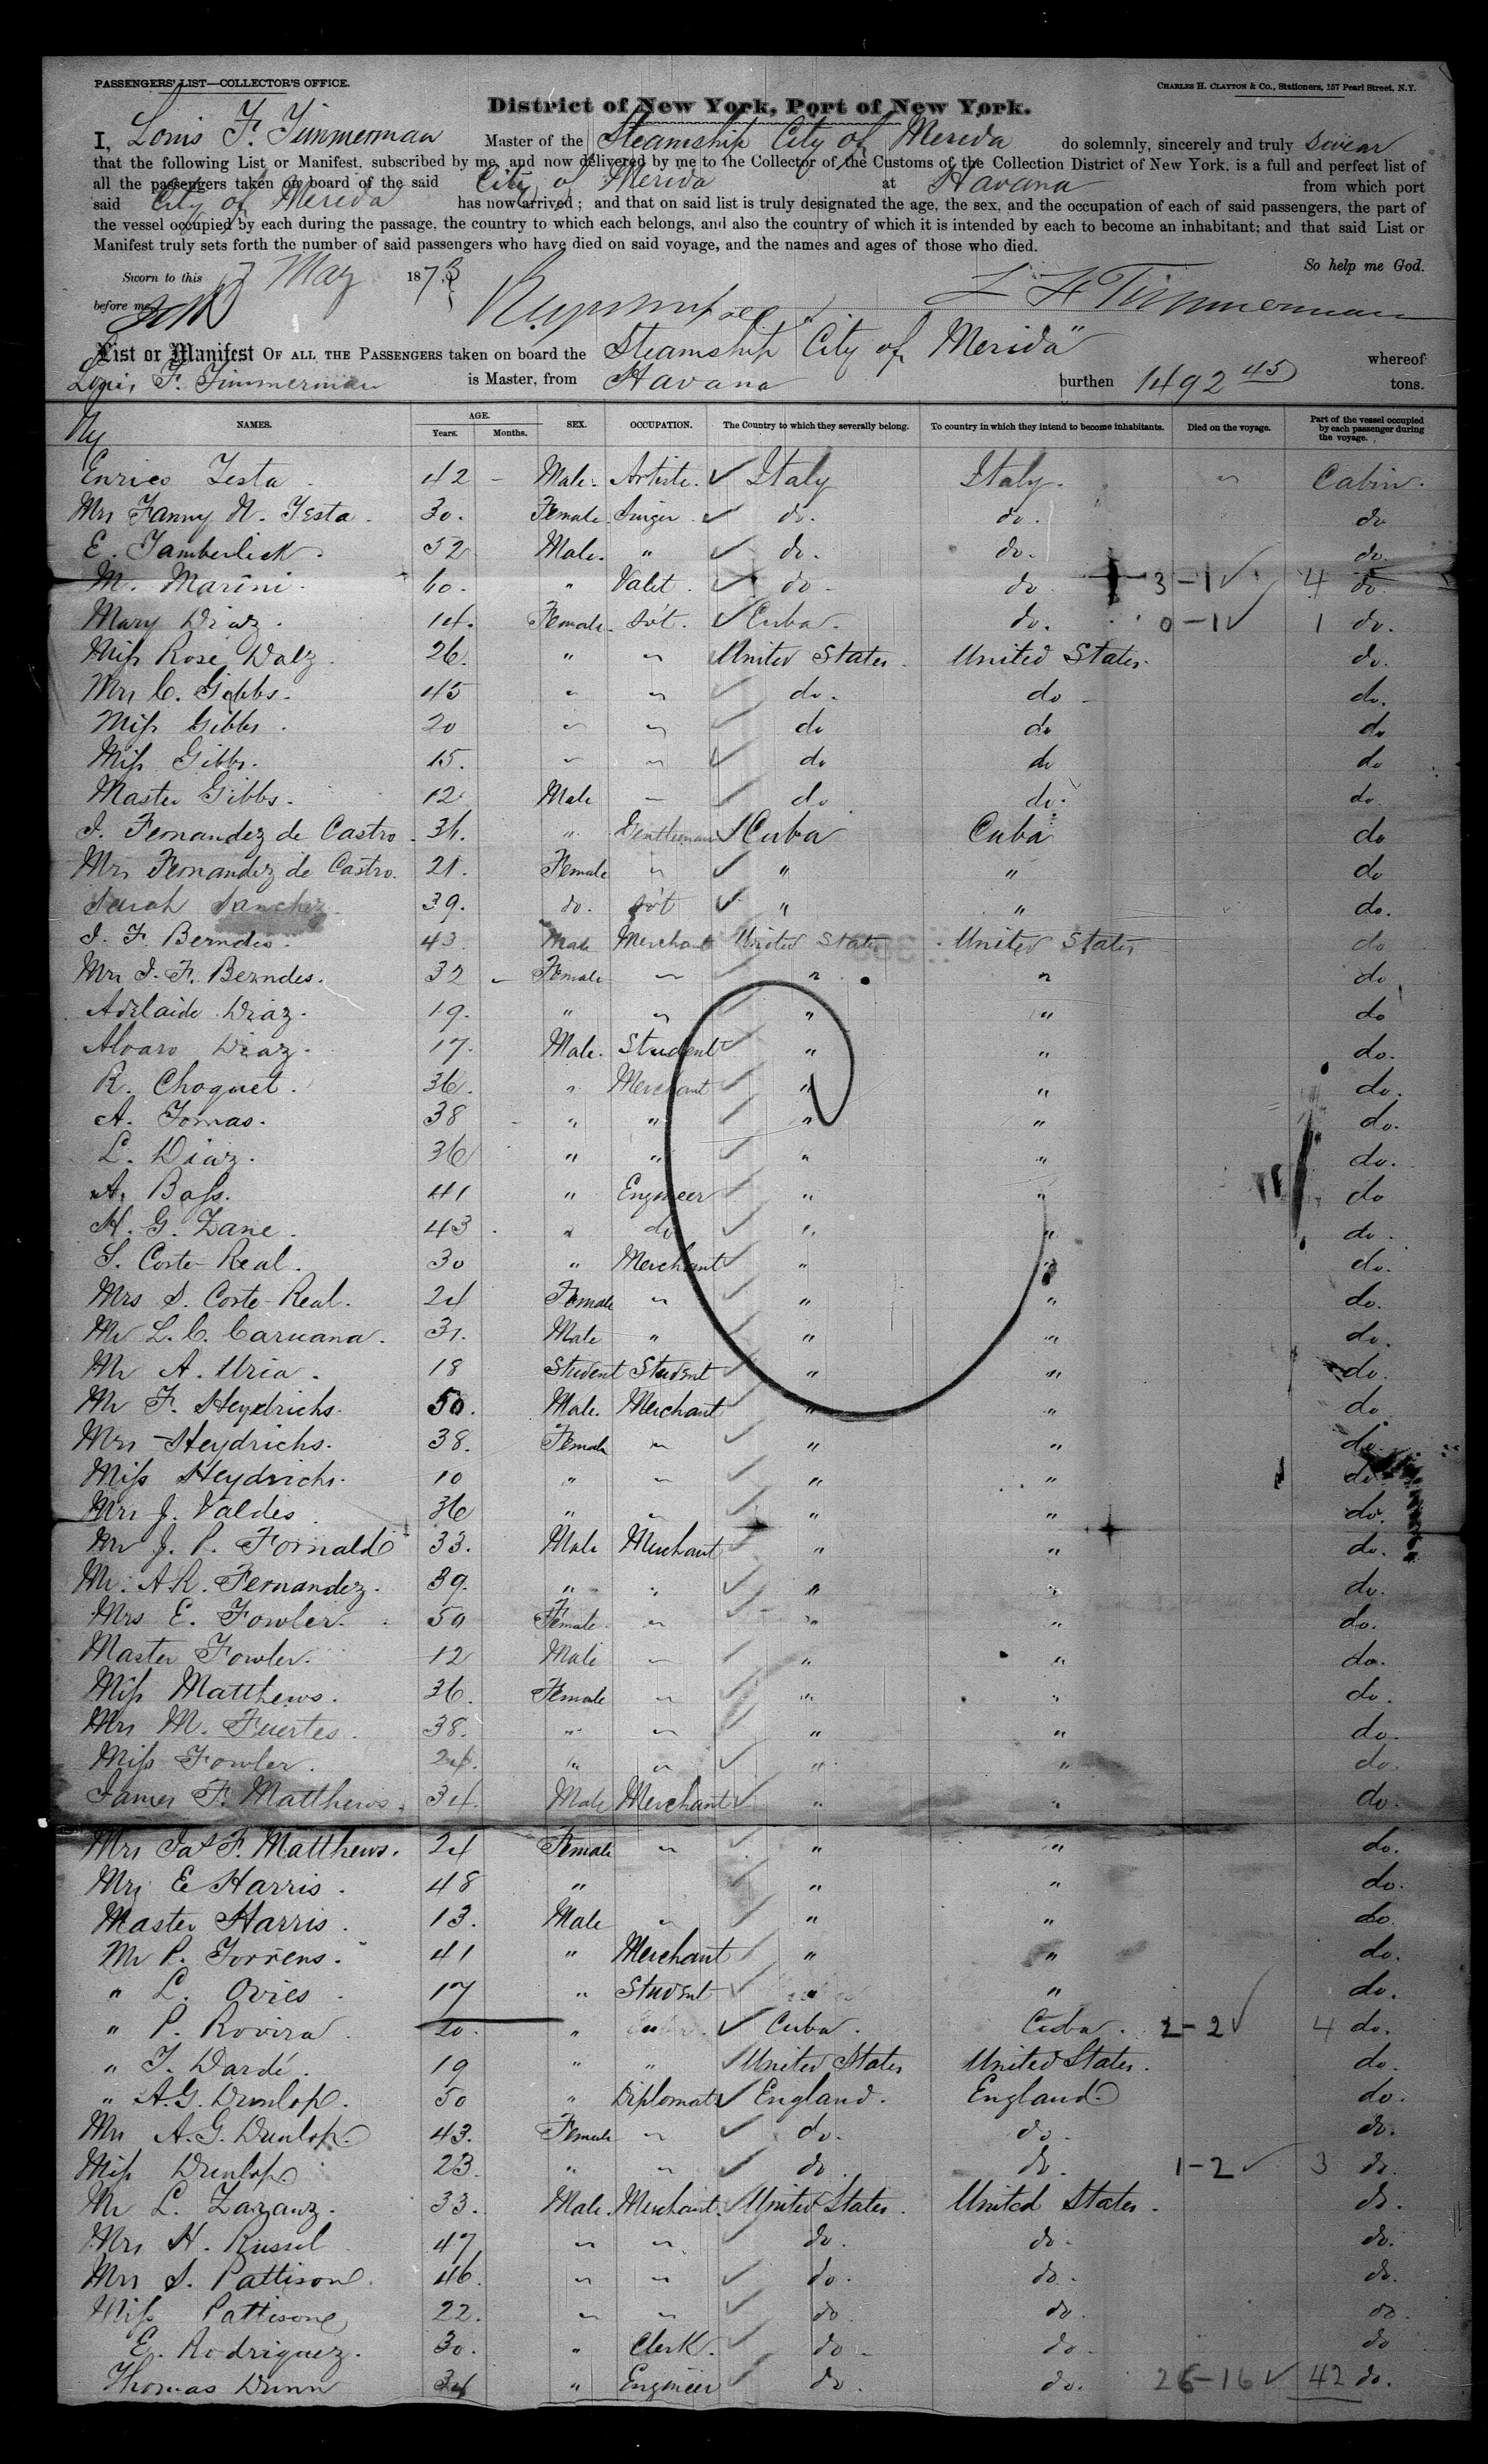 PASSENGERS' LIST—COLLECTOR'S OFFICE.
CHARLES H. CLAYTON & CO., Stationers, 157 Pearl Street, N.Y.
District of New York, Port of New York.
I, Louis F. Timmerman Master of the Steamship City of Merida do solemnly, sincerely and truly swear
that the following List or Manifest, subscribed by me, and now delivered by me to the Collector of the Customs of the Collection District of New York, is a full and perfect list of
all the passengers taken on board of the said City of Merida at Havana from which port
said City of Merida has now arrived; and that on said list is truly designated the age, the sex, and the occupation of each of said passengers, the part of
the vessel occupied by each during the passage, the country to which each belongs, and also the country of which it is intended by each to become an inhabitant; and that said List or
Manifest truly sets forth the number of said passengers who have died on said voyage, and the names and ages of those who died.
So help me God.
Sworn to this 7 May 1873
before me
L F Timmerman
List or Manifest OF ALL THE PASSENGERS taken on board the Steamship "City of Merida" whereof
Louis F. Timmerman is Master, from Havana burthen 1492 45 tons.
NAMES. AGE. Years. Months. SEX. OCCUPATION. The Country to which they severally belong. To country in which they intend to become inhabitants. Died on the voyage. Part of the vessel occupied by each passenger during the voyage.
Ny
Enrico Testa. 42 - Male. Artiste. Italy Italy. " Cabin.
Mrs Fanny N. Testa. 30. Female. Singer. do. do. do
E. Tamberlick. 52 Male. " do. do. do.
M. Marini. 60. " Valet. do. do 3-1 4 do
Mary Diaz. 14. Female. Svt. Cuba. do. 0-1 1 do.
Miss Rose Walz. 26. " " United States. United States. do.
Mrs C. Gibbs. 45 " " do. do. do.
Miss Gibbs. 20 " " do do do
Miss Gibbs. 15. " " do do do
Master Gibbs. 12 Male - do do. do
J. Fernandez de Castro. 36. " Gentleman Cuba Cuba do
Mrs Fernandez de Castro. 21. Female " " " do
Sarah Sanchez. 39. do. Svt " " do.
J. F. Berndes. 43 Male Merchant United States United States do
Mrs J. F. Berndes. 32 - Female " " " do
Adelaide Diaz. 19. " " " " do
Alvaro Diaz. 17. Male. Student " " do.
R. Choquet. 36. " Merchant " " do.
A. Tomas. 38 " " " " do.
L. Diaz. 36 " " " " do.
A. Bass. 41 " Engineer " " do
H. G. Zane. 43 " do " " do.
S. Corte-Real. 30 " Merchant " " do.
Mrs S. Corte-Real. 24 Female " " " do.
Mr L. C. Caruana. 31. Male " " " do.
Mr A. Uria. 18 Student Student " " do.
Mr F. Heydrichs. 50. Male. Merchant " " do.
Mrs Heydrichs. 38. Female " " " do.
Miss Heydrichs. 10 " " " " do.
Mrs J. Valdes 36 " " " " do.
Mr J. P. Fornald 33. Male Merchant " " do.
Mr. A R. Fernandez. 39. " " " " do.
Mrs E. Fowler. 50 Female " " " do.
Master Fowler. 12 Male " " " do.
Miss Matthews. 36. Female " " " do.
Mrs M. Fuertes. 38. " " " " do.
Miss Fowler. 24. " " " " do.
James F. Matthews. 34. Male Merchant " " do.
Mrs Jas F. Matthews. 24 Female " " " do.
Mrs E Harris. 48 " " " do.
Master Harris. 13. Male " " " do.
Mr P. Torrens. 41 " Merchant " " do.
" L. Ovies. 17 " Student " " do.
" P. Rovira. 20. " " Cuba. Cuba. 2-2 4 do.
" T. Dardé. 19 " " United States United States. do.
" A.G. Dunlop. 50 " Diplomat England. England. do.
Mrs A.G. Dunlop. 43. Female " do. do. do.
Miss Dunlop 23. " " do. do. 1-2 3 do.
Mr L. Zazanz. 33. Male. Merchant. United States. United States. do.
Mrs H. Russel 47 " " do. do. do.
Mrs S. Pattison. 46. " " do. do. do.
Miss Pattison 22. " " do do. do.
E. Rodriguez. 30. " Clerk. do do. do
Thomas Dunn 34 " Engineer do. do. 26-16 42 do.